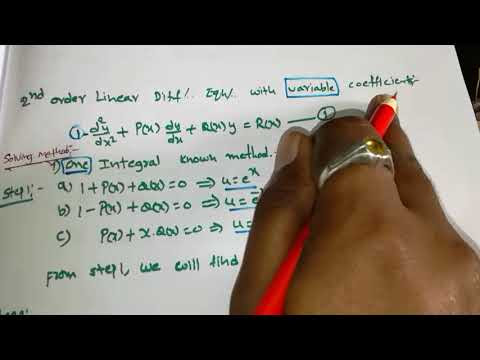 2nd order Linear Diff/. Eqn/. with variable coefficients:-
1. d²y/dx² + P(x) dy/dx + Q(x)y = R(x) — ①
Solving method:-
1) One Integral known method.
Step 1:- a) 1+P(x)+Q(x)=0 ⇒ u=eˣ
b) 1-P(x)+Q(x)=0 ⇒ u=e
c) P(x)+x.Q(x)=0 ⇒ u=
From step 1, we will find